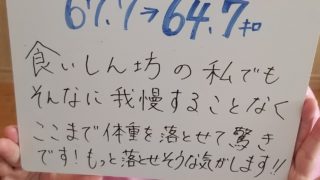 67.7→64.7キロ
食いしん坊の私でも
そんなに我慢することなく
ここまで体重を落とせて驚き
です！もっと落とせそうな気がします!!